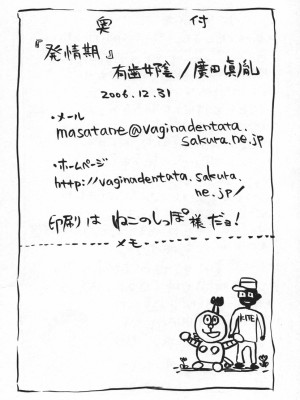 奥付
『発情期』
有歯女陰/廣田眞胤
2006.12.31
・メール
masatane@vaginadentata.
sakura.ne.jp
・ホームページ
http://vaginadentata.sakura.
ne.jp/
印刷はねこのしっぽ様だョ!
メモ
KITE